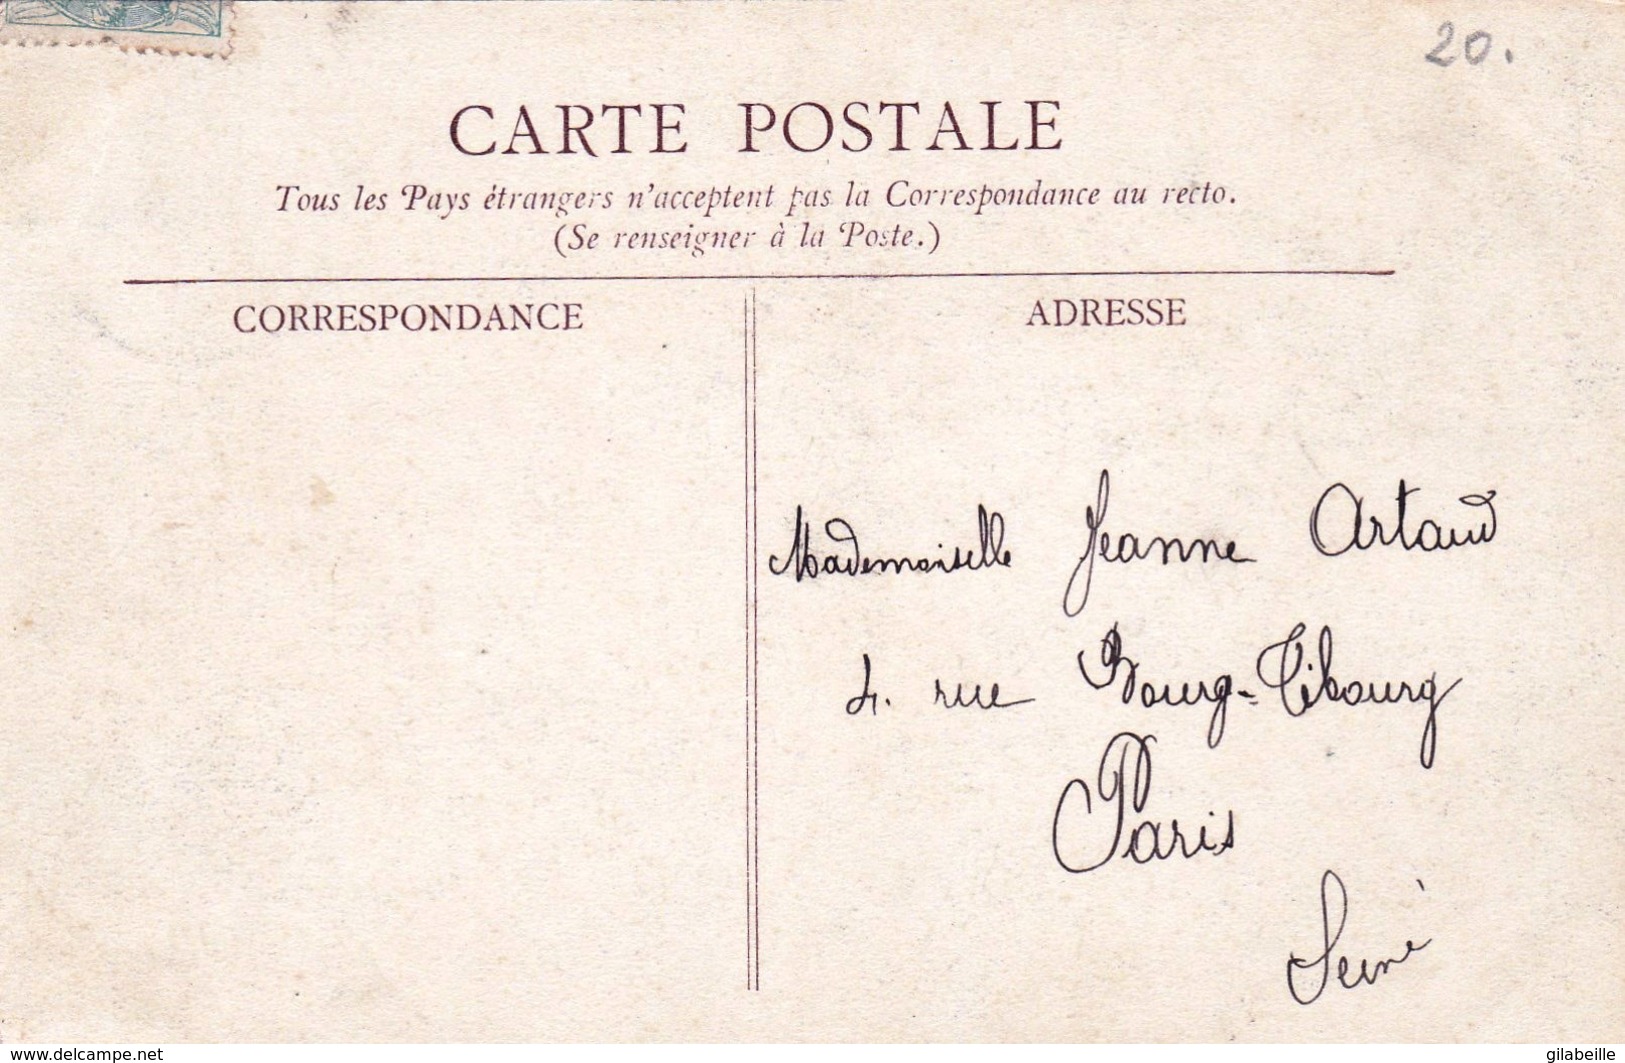 20.
CARTE POSTALE
Tous les Pays étrangers n'acceptent pas la Correspondance au recto.
(Se renseigner à la Poste.)
CORRESPONDANCE
ADRESSE
Mademoiselle Jeanne Artaud
4. rue Bourg-Tibourg
Paris
Seine
www.delcampe.net
gilabeille